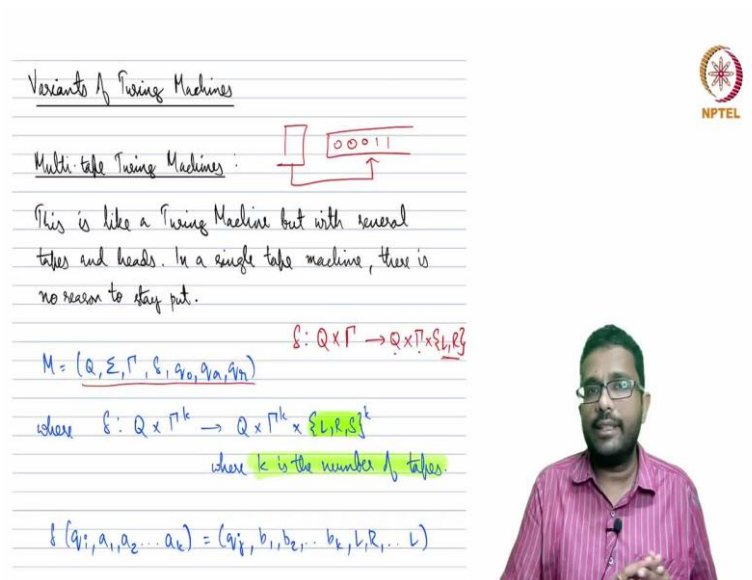 Variants of Turing Machines
NPTEL
00011
Multi-tape Turing Machines :
This is like a Turing Machine but with several
tapes and heads. In a single tape machine, there is
no reason to stay put.
δ: Q × Γ → Q × Γ × {L, R}
M = (Q, Σ, Γ, δ, q₀, qₐ, qᵣ)
where δ : Q × Γᵏ → Q × Γᵏ × {L, R, S}ᵏ
where k is the number of tapes.
δ (qᵢ, a₁, a₂ ... aₖ) = (qⱼ, b₁, b₂, .. bₖ, L, R, ... L)